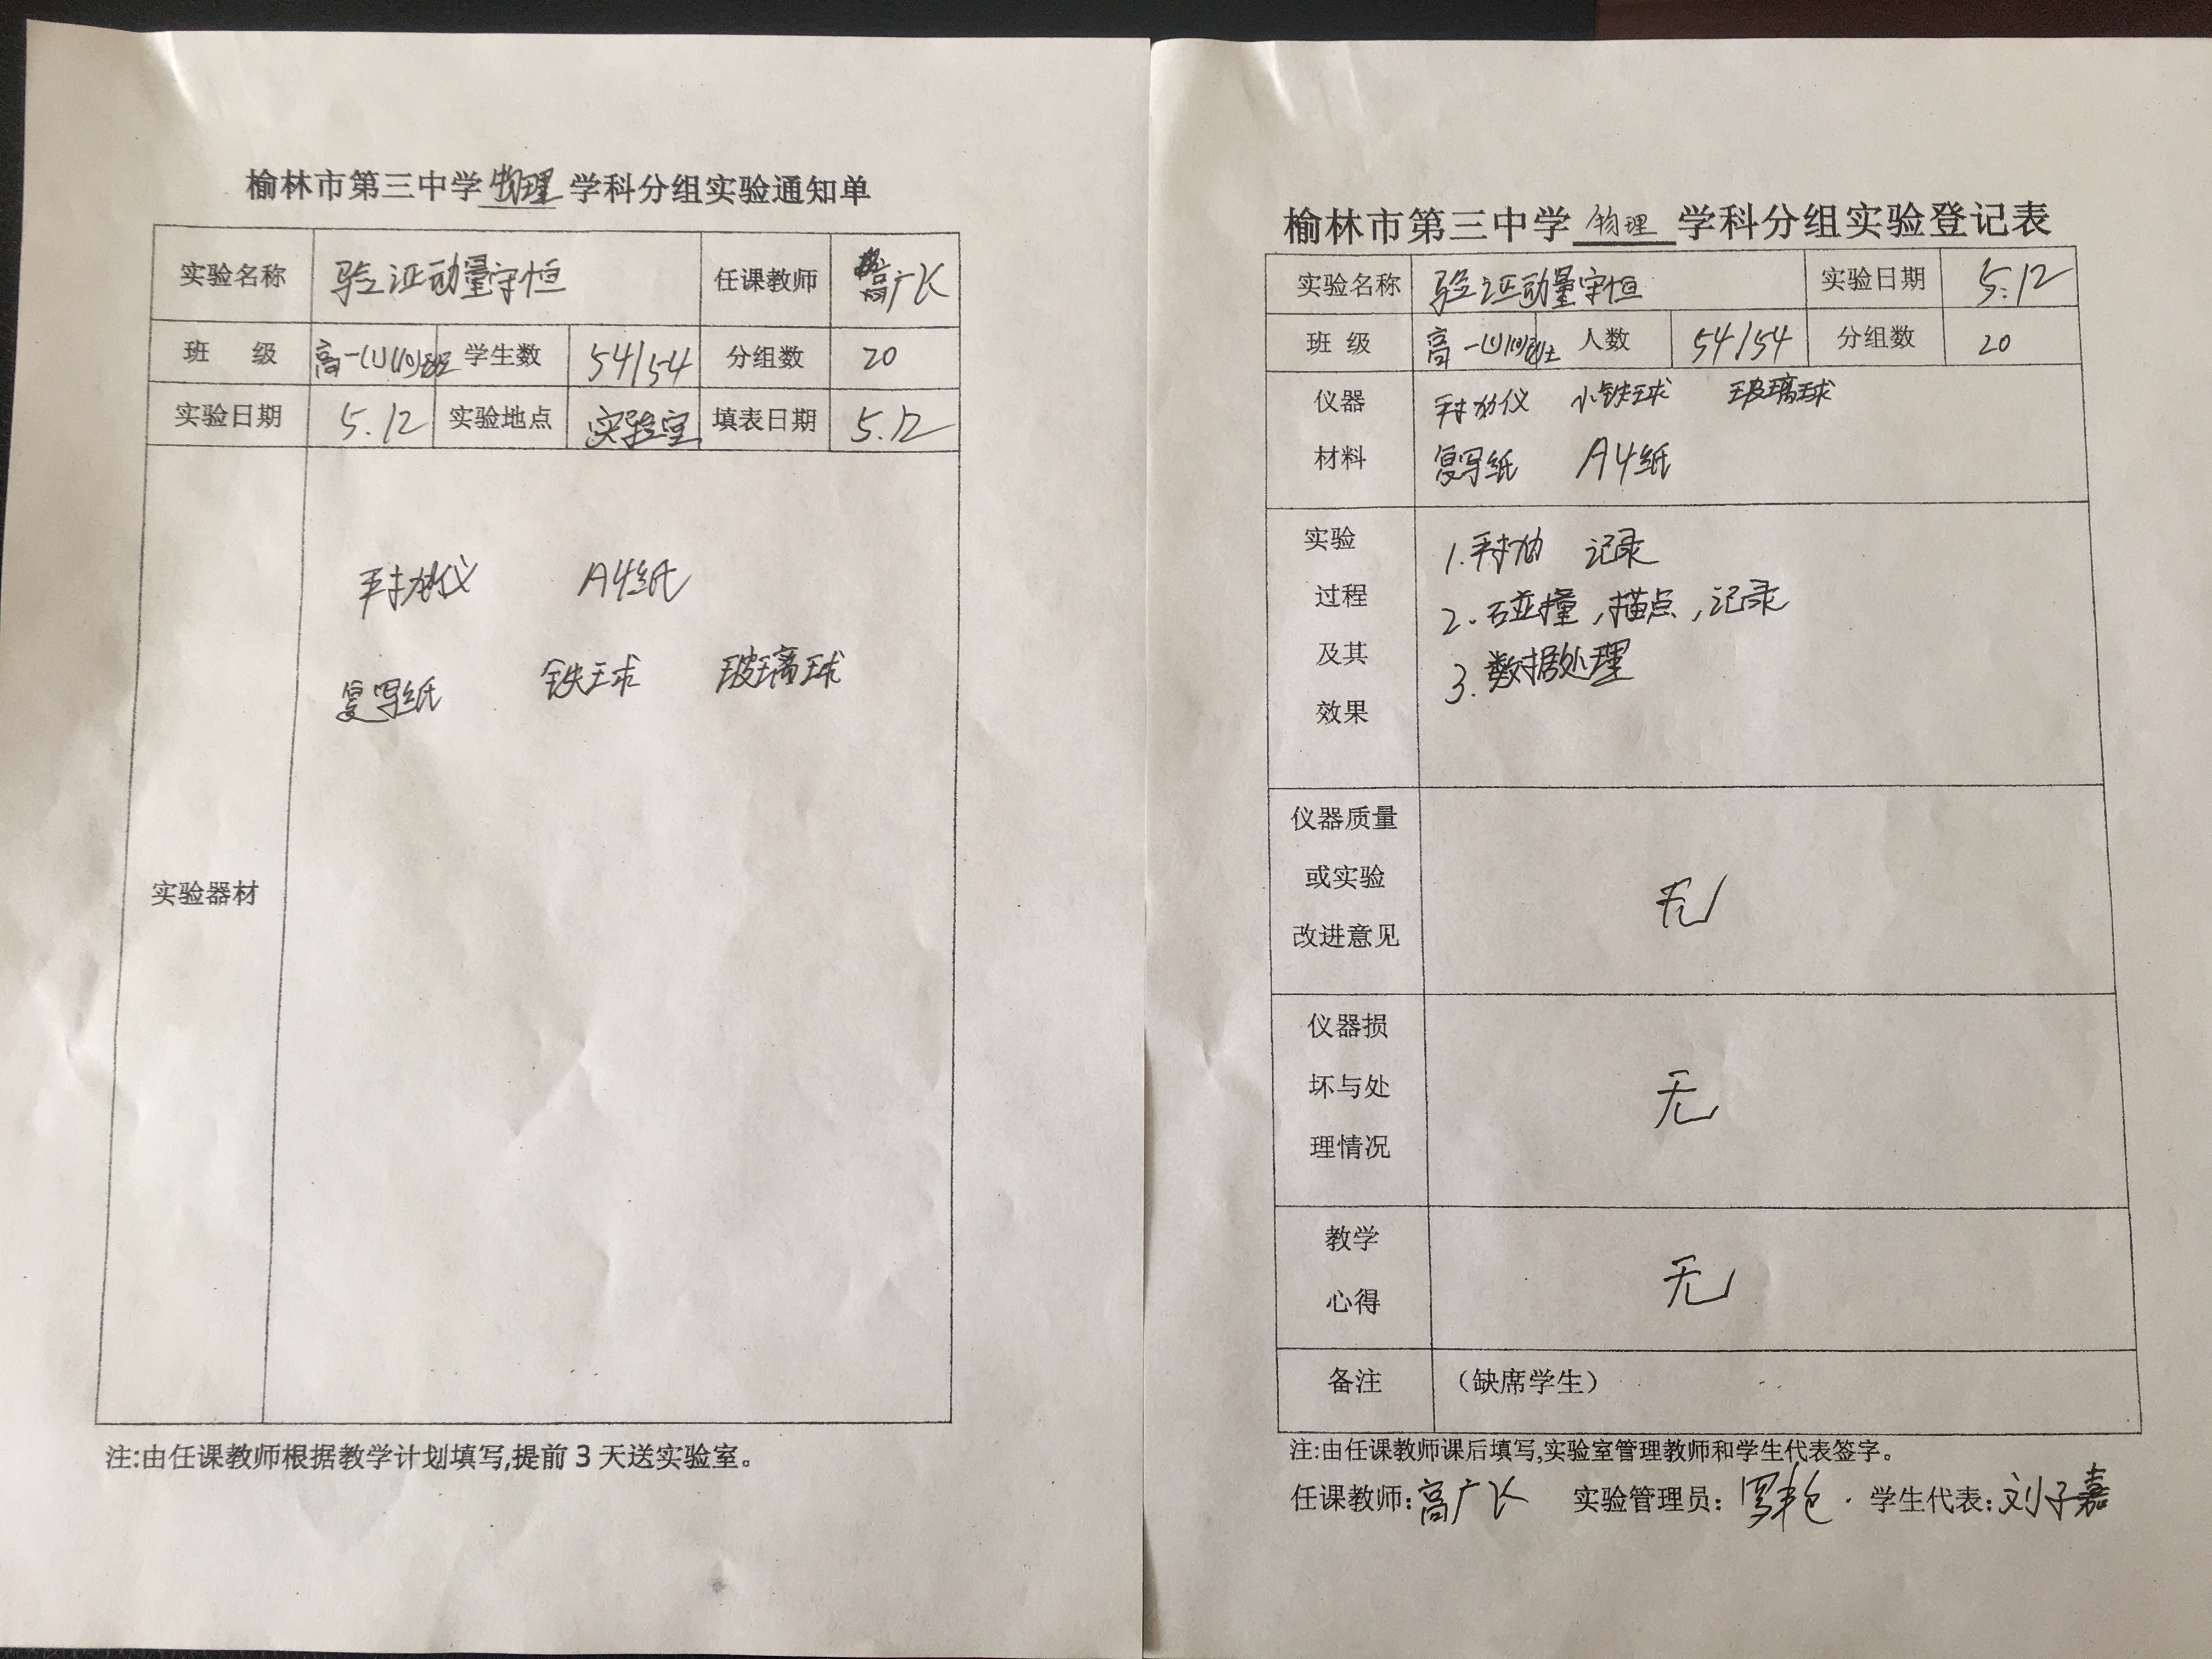 榆林市第三中学物理学科分组实验通知单
实验名称 验证动量守恒 任课教师 高广飞
班 级 高一(1)(10)班 学生数 54/54 分组数 20
实验日期 5.12 实验地点 实验室 填表日期 5.12
A4纸
复写纸 铁球 玻璃球
实验器材
注:由任课教师根据教学计划填写,提前3天送实验室。
榆林市第三中学物理学科分组实验登记表
实验名称 验证动量守恒 实验日期 5.12
班 级 高一(1)(10)班 人数 54/54 分组数 20
仪器 小铁球 玻璃球
材料 复写纸 A4纸
实验 1. 记录
过程 2. 碰撞,描点,记录
及其 3. 数据处理
效果
仪器质量
或实验 无
改进意见
仪器损
坏与处 无
理情况
教学 无
心得
备注 (缺席学生)
注:由任课教师课后填写,实验室管理教师和学生代表签字。
任课教师:高广飞 实验管理员: 学生代表:刘子嘉